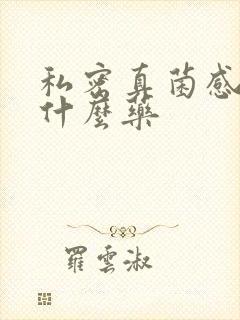 私密真菌感
什麼藥
羅雲淑